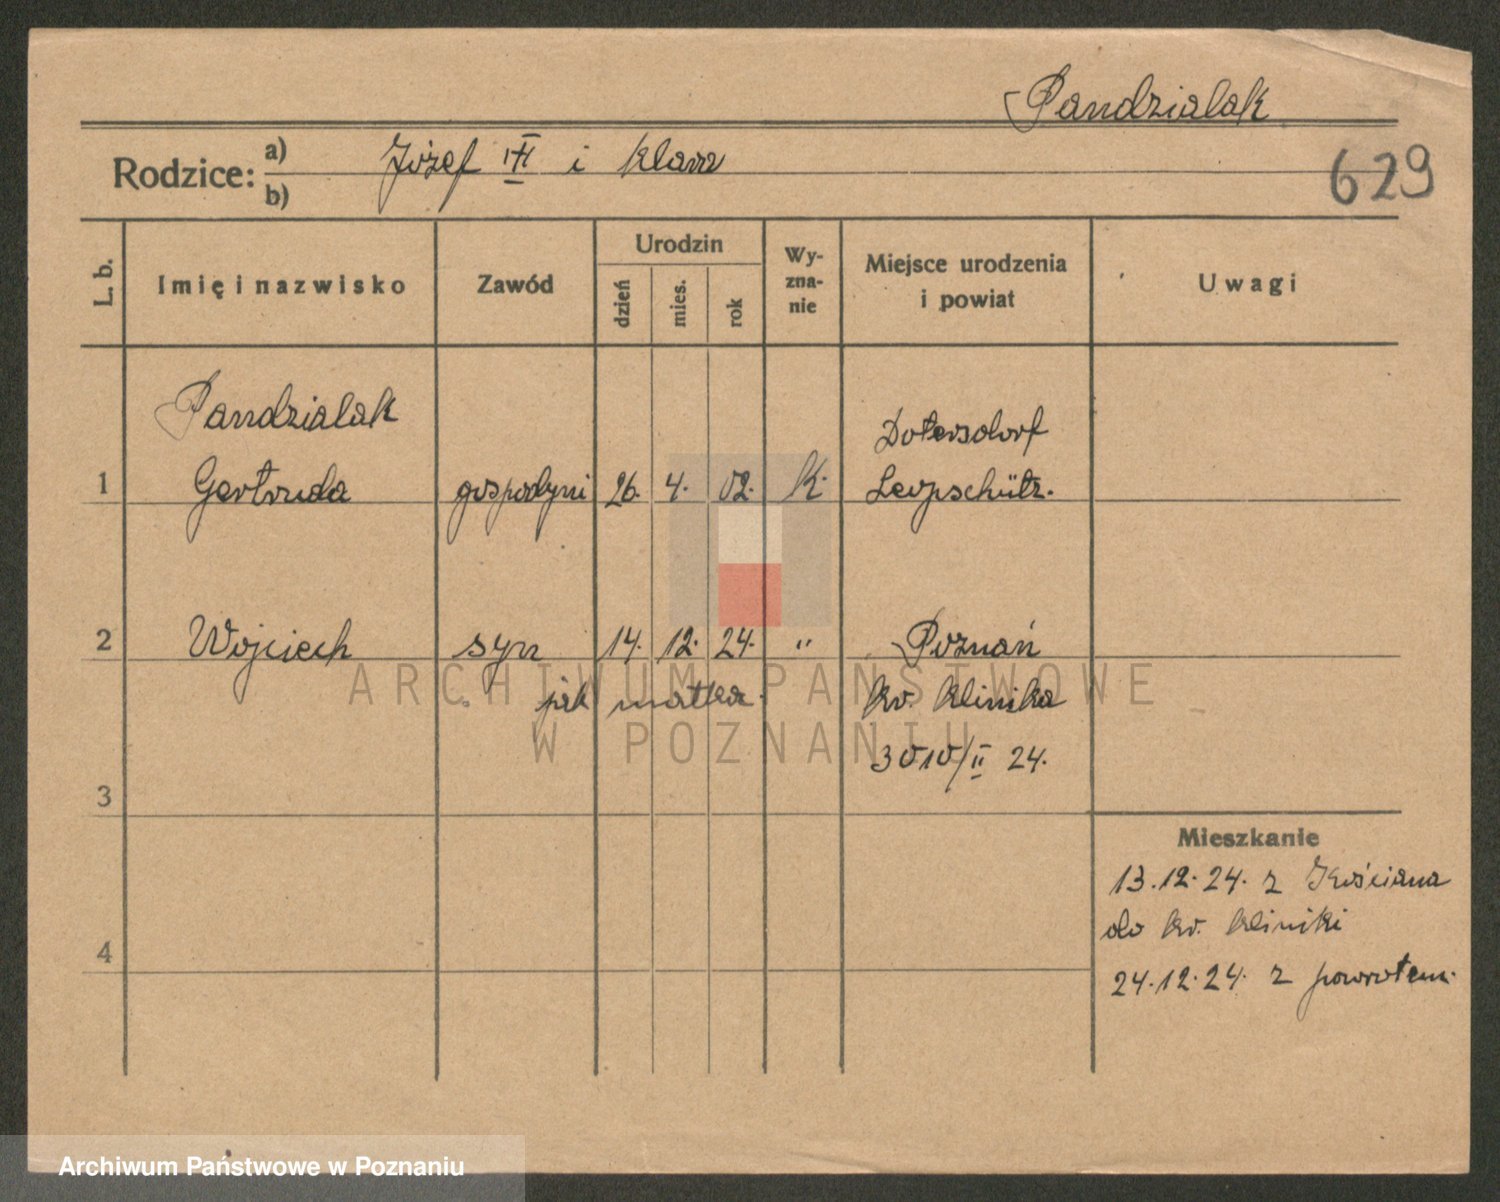 Pandzialak
Rodzice: a) Józef i Klara
b)
629
L. b.
Imię i nazwisko
Zawód
Urodzin
dzień
mies.
rok
Wy-
zna-
nie
Miejsce urodzenia
i powiat
Uwagi
Pandzialak
Dotersdorf
1 Gertruda gospodyni 26. 4. 02. k. Leopschütz.
2 Wojciech syn 14. 12. 24. " Poznań
jak matka. kr. klinika
3010/II 24.
3
Mieszkanie
13.12.24. z Kościana
do kr. kliniki
4
24.12.24. z powrotem.
ARCHIWUM PAŃSTWOWE
W POZNANIU
Archiwum Państwowe w Poznaniu